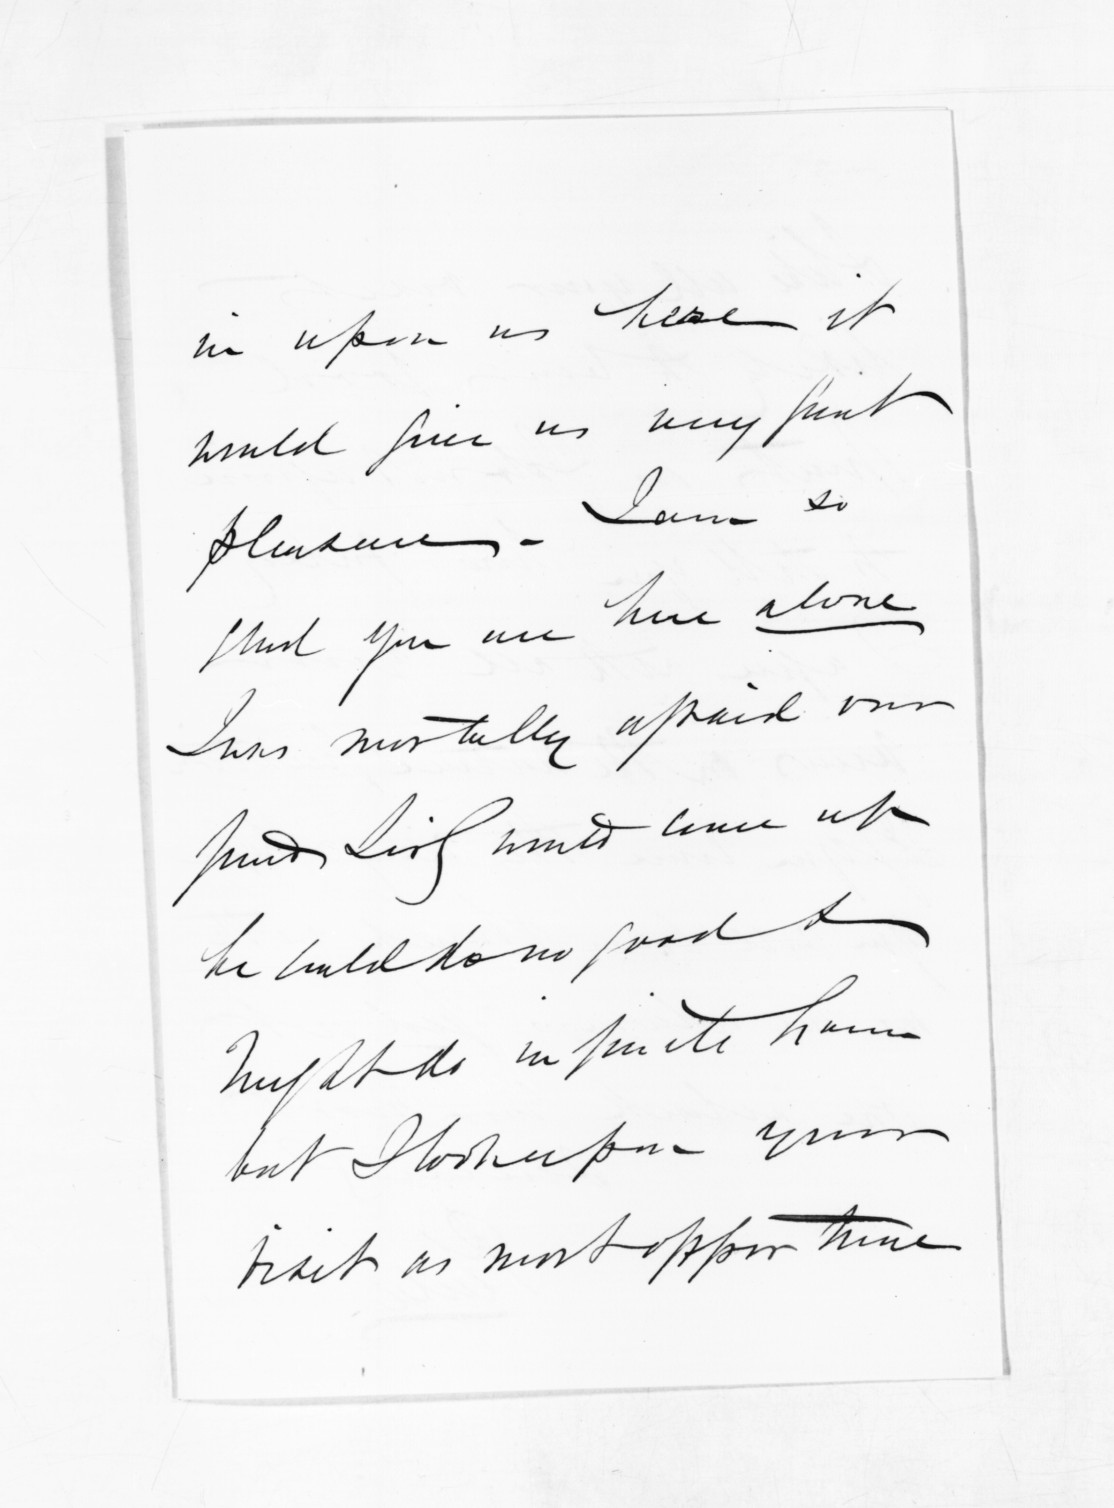 in upon us here it
would give us very great
pleasure. - I am so
glad you are here alone
I was mortally afraid our
friend would come up
he could do no good &
might do infinite harm
but I look upon your
visit as most opportune